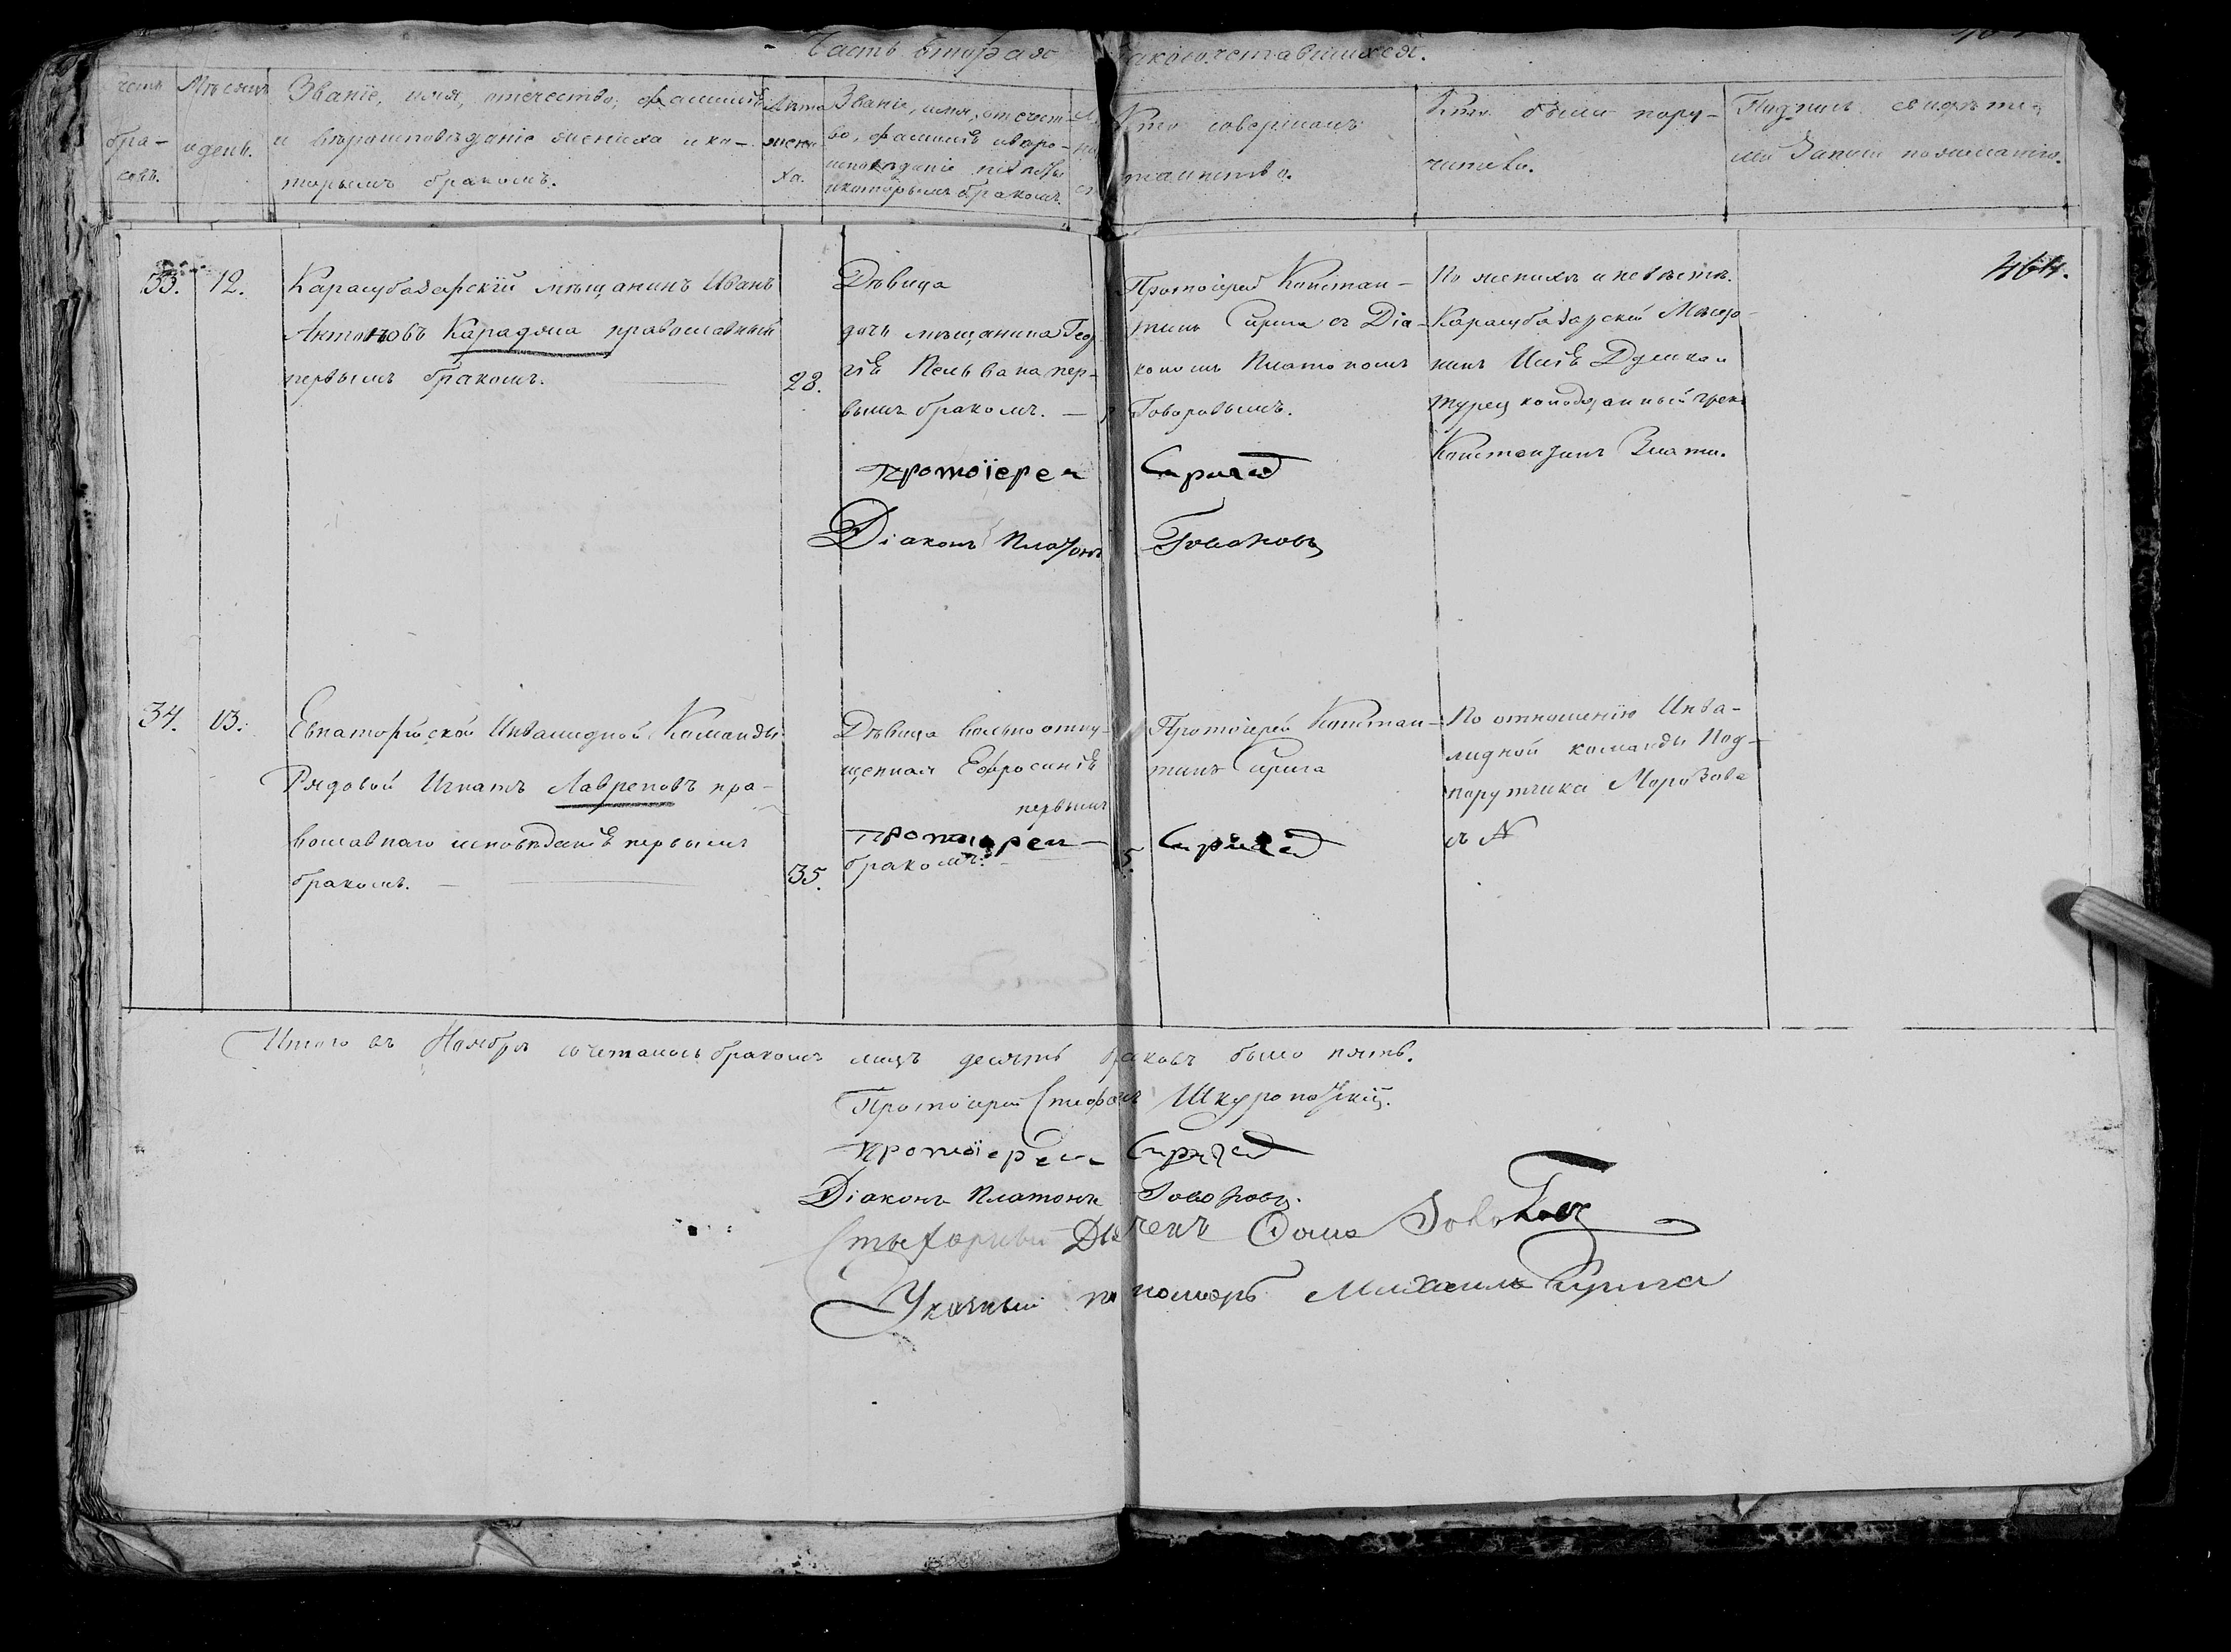 Часть вторая
бракосочетавшихся.
Счетъ браковъ.
Мѣсяцъ и день.
Званіе, имя, отечество, фамилія
и вѣроисповѣданіе жениха и ко-
торымъ бракомъ.
Лѣта
жени
ха.
Званіе, имя, отечест-
во, фамилія и вѣро-
исповѣданіе невѣсты
и которымъ бракомъ.
Кто совершалъ
таинство.
Кто были пору-
чители.
Подпись свидѣте-
лей записи по желанію.
464.
33.
12.
Карасубазарскій мѣщанинъ Иванъ
Антоновъ Карадяна православный
первымъ бракомъ.
23.
Дѣвица
дочь мѣщанина Геор
гія Пельвана пер-
вымъ бракомъ.
Протоіерей Констан-
тинъ Сприга съ Діа-
кономъ Платономъ
Говоровымъ.
По женихѣ и невѣстѣ.
Карасубазарскій Мѣща-
нинъ Илія
турецкоподданный грекъ
Константинъ
Протоіерей Сприга
Діаконъ Платонъ Говоровъ
34.
13.
Евпаторійской Инвалидной Команды
Рядовой Игнатъ Лавреновъ пра-
вославнаго исповѣданія первымъ
бракомъ.
35.
Дѣвица вольноотпу-
щенная Ефросинія
первымъ
бракомъ.
Протоіерей Констан-
тинъ Сприга
По отношенію Инва-
лидной команды Под-
порутчика Морозова
съ N
Протоіерей Сприга
Итого въ Ноябрѣ сочеталось бракомъ лицъ десять браковъ было пять.
Протоіерей Стефанъ Шкуропатскій.
Протоіерей Сприга
Діаконъ Платонъ Говоровъ.
Стихарный Дьячекъ Фома
Указный пономарь Михаилъ Сприга